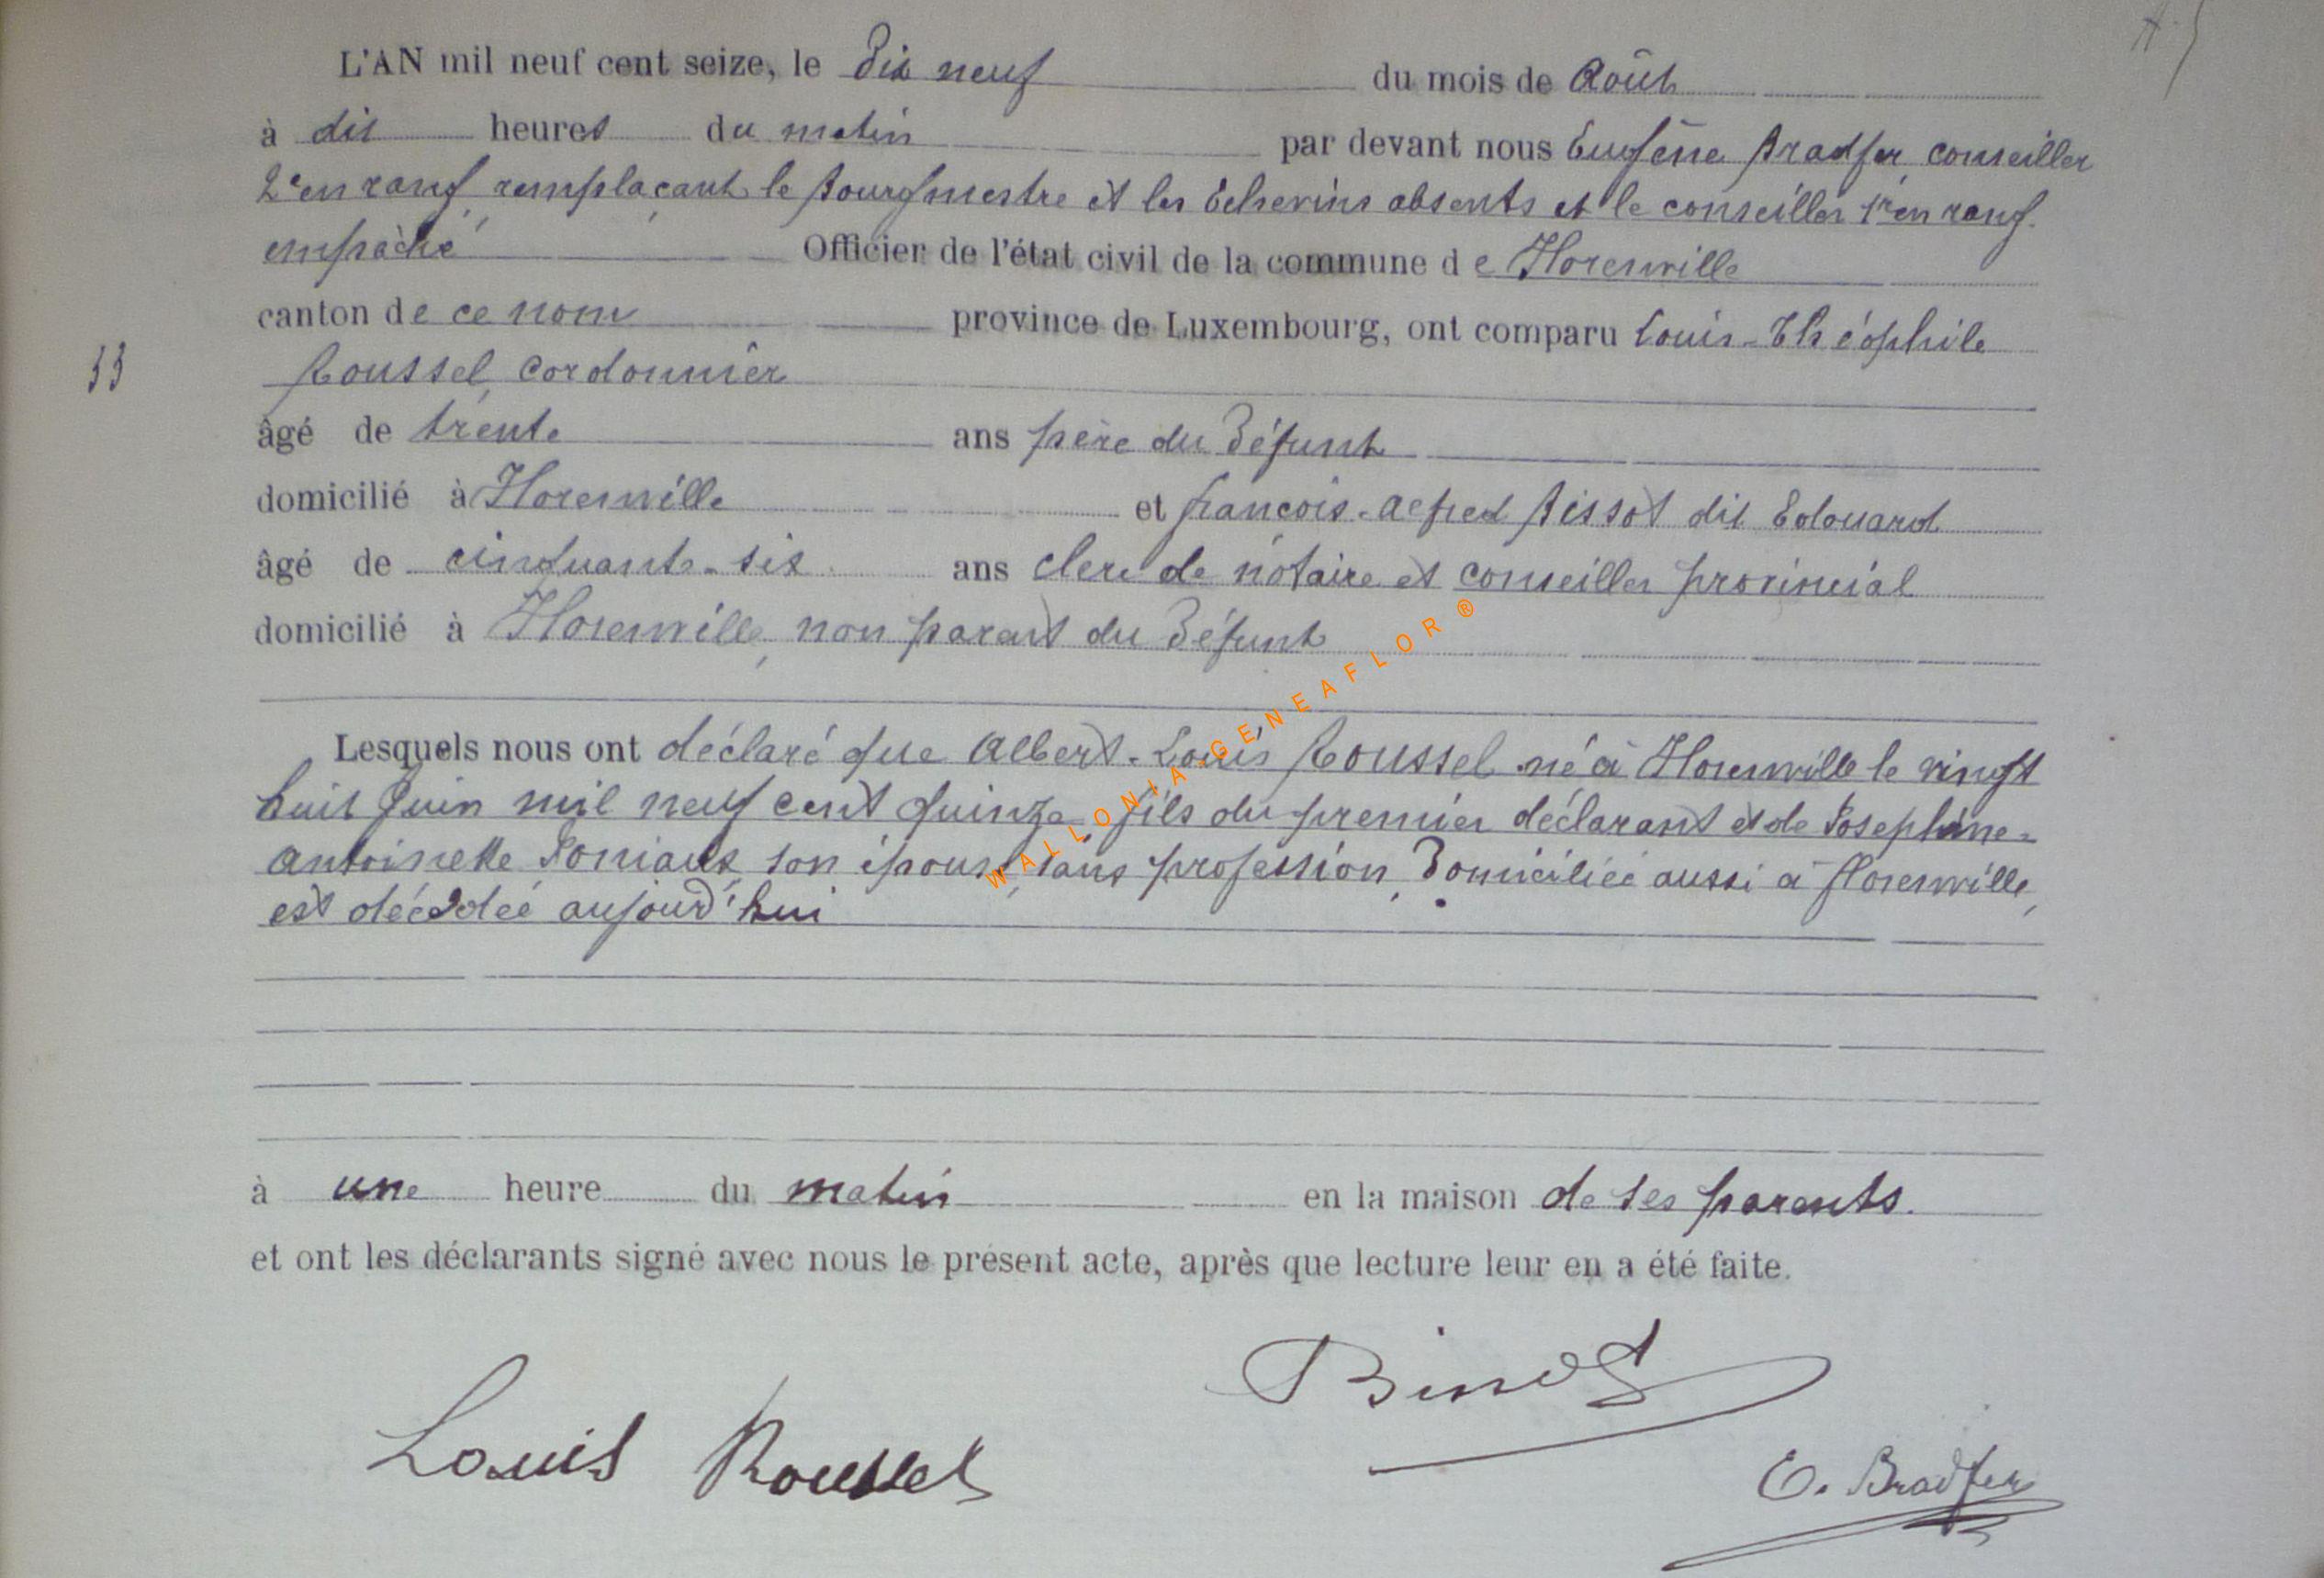 L'AN mil neuf cent seize, le Dix neuf du mois de Août
à dix heures du matin par devant nous Eugène Bradfer, conseiller
2e en rang, remplaçant le Bourgmestre et les Echevins absents et le conseiller 1er en rang
empêché Officier de l'état civil de la commune de Florenville
canton de ce nom province de Luxembourg, ont comparu Louis-Théophile
33
Roussel, cordonnier
âgé de trente ans père du Défunt
domicilié à Florenville et françois-Alfred dit Edouard
âgé de cinquante-six ans clerc de notaire et conseiller provincial
domicilié à Florenville, non parent du Défunt
Lesquels nous ont déclaré que Albert-Louis Roussel né à Florenville le vingt
huit Juin mil neuf cent quinze, fils du premier déclarant et de Josephine-
Antoinette Poniaux, son épouse, sans profession, Domiciliée aussi à florenville,
est décédé aujourd'hui
à une heure du matin en la maison de ses parents.
et ont les déclarants signé avec nous le présent acte, après que lecture leur en a été faite.
Louis Roussel
E. Bradfer
WALLONIA.GENEAFLOR ®